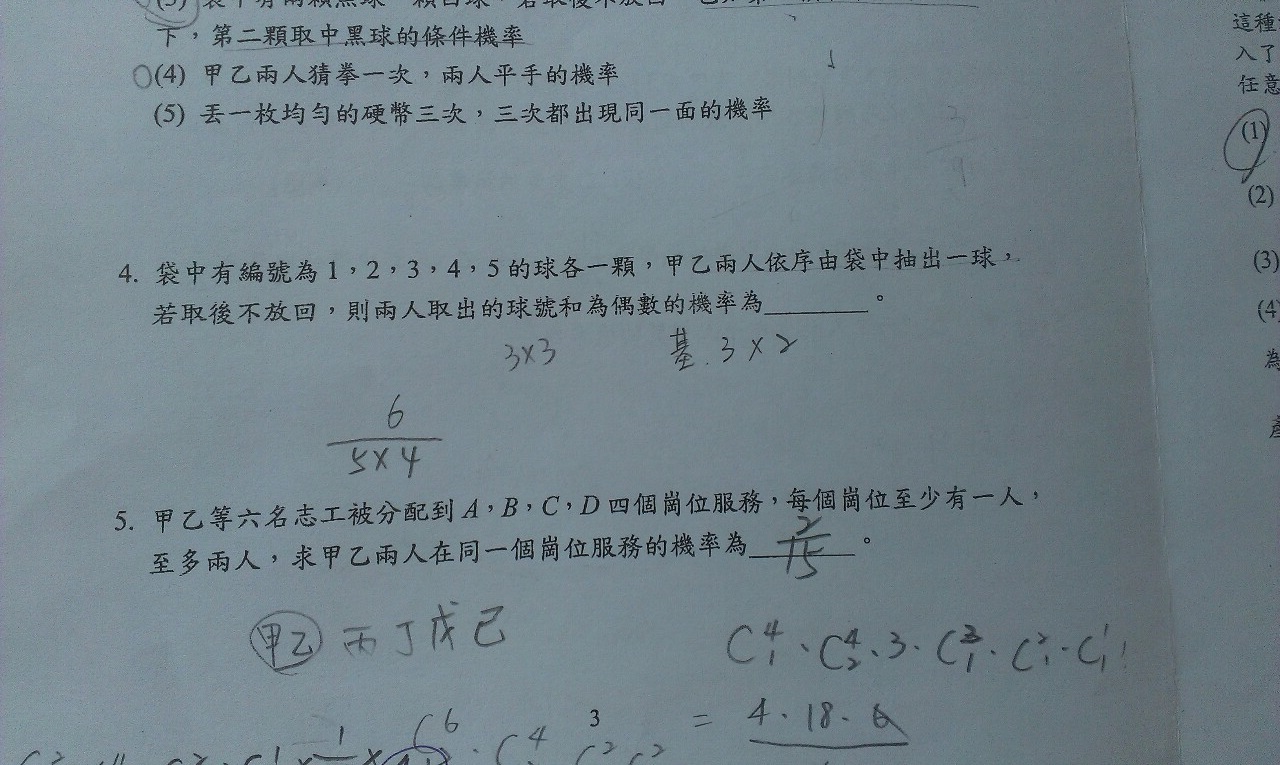 下，第二顆取中黑球的條件機率
(4) 甲乙兩人猜拳一次，兩人平手的機率
(5) 丟一枚均勻的硬幣三次，三次都出現同一面的機率
4. 袋中有編號為 1，2，3，4，5 的球各一顆，甲乙兩人依序由袋中抽出一球，
若取後不放回，則兩人取出的球號和為偶數的機率為________。
3×3 基. 3×2
6
5×4
5. 甲乙等六名志工被分配到 A，B，C，D 四個崗位服務，每個崗位至少有一人，
至多兩人，求甲乙兩人在同一個崗位服務的機率為 2/15 。
甲乙 丙丁戊己
3
= 4·18·6
這種
入了
任意
(1)
(2)
(3)
(4)
為